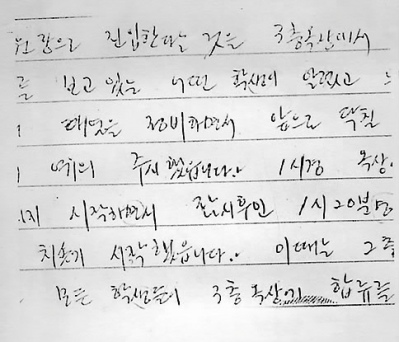 진입한다는 것은 3층옥상에서
를 보고 있는 어떤 학생이 알렸고
대열을 정비하면서 앞으로 닥칠
예의 주시 했습니다. 1시경 옥상
시작하면서 잠시후인 1시20분경
치솟기 시작 했습니다. 이때는 2층
모든 학생들이 3층 옥상키 합류를